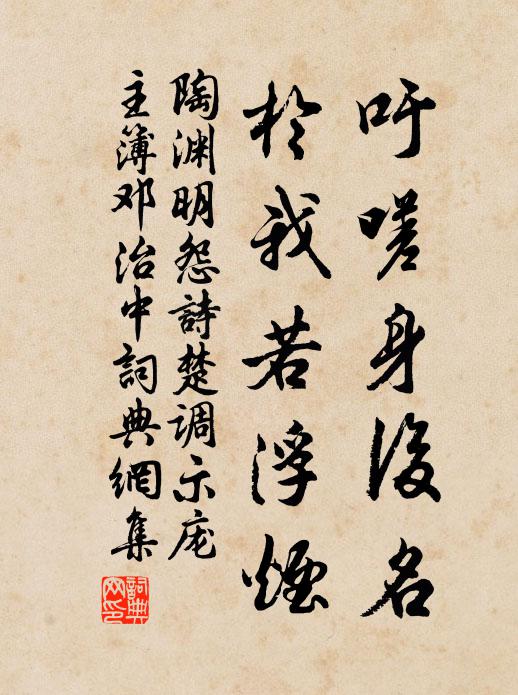 吁嗟身後名
於我若浮煙
陶渊明怨詩楚调示庞
主簿邓治中詞典網集
詞典网印